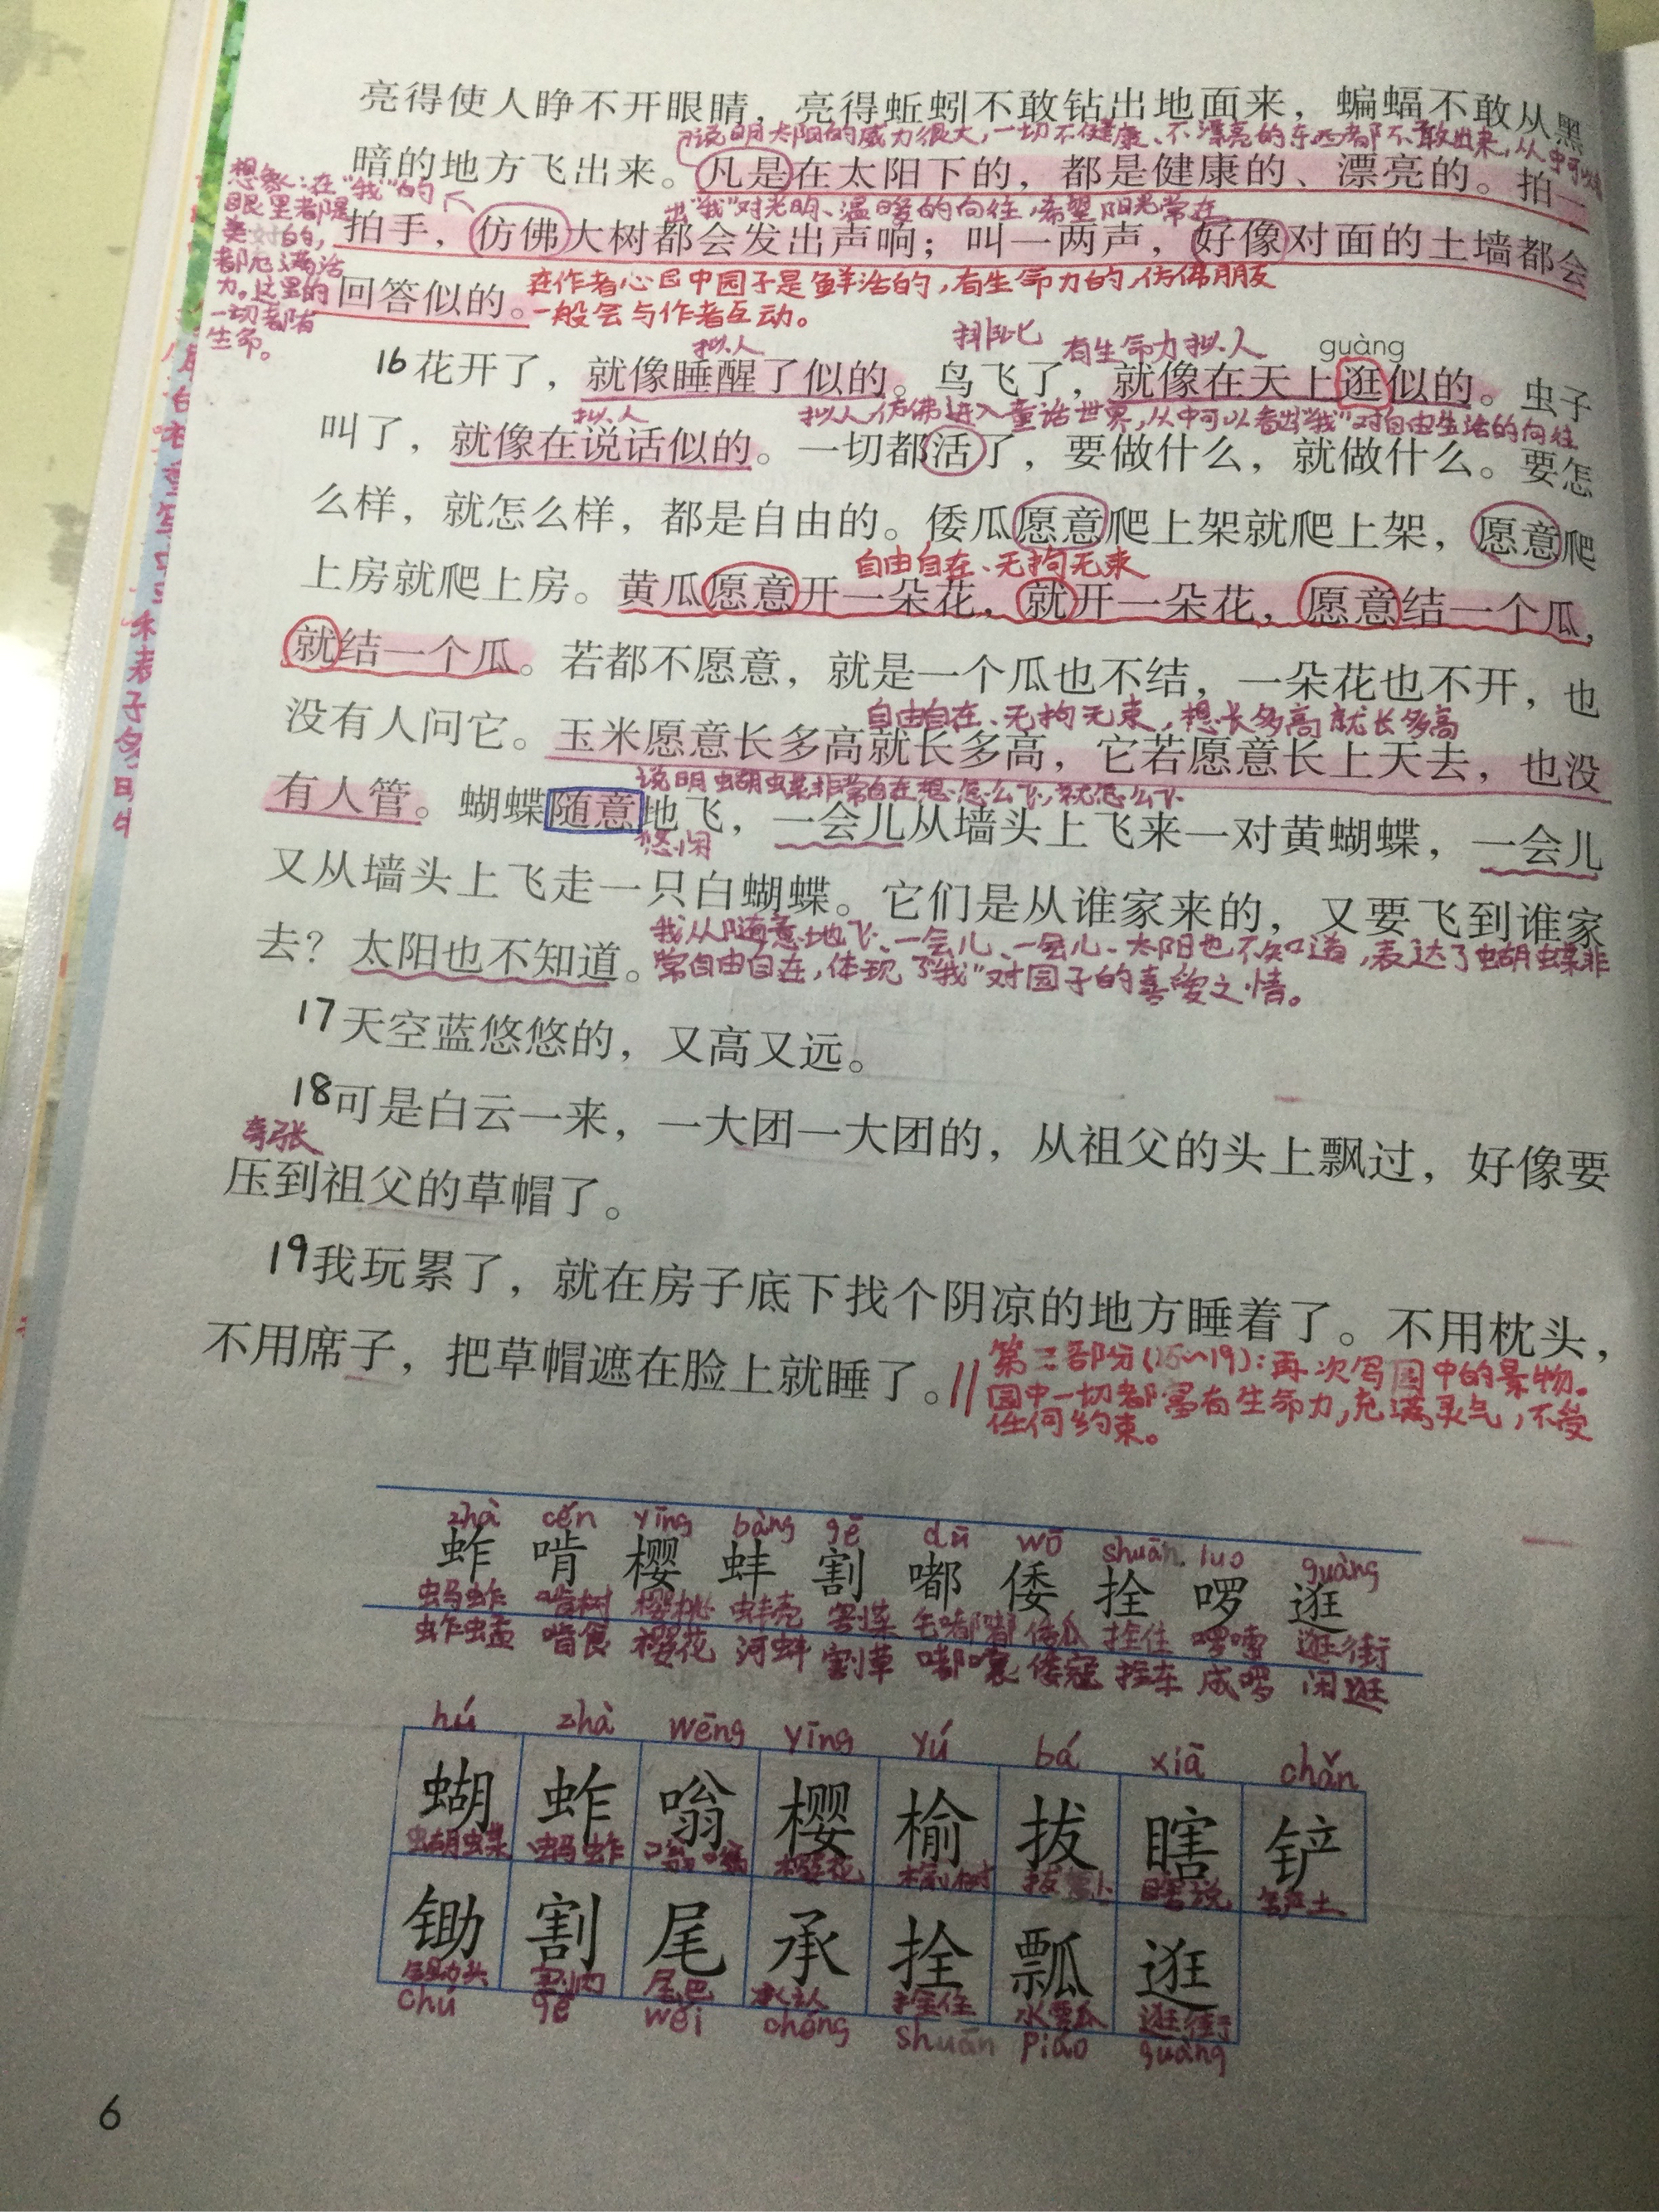 亮得使人睁不开眼睛，亮得蚯蚓不敢钻出地面来，蝙蝠不敢从黑
说明太阳的威力很大，一切不健康、不漂亮的东西都不敢出来，从中可以看
暗的地方飞出来。凡是在太阳下的，都是健康的、漂亮的。拍一
出“我”对光明、温暖的向往，希望阳光常在
想象：在“我”的
眼里都是
美好的，
都充满活
力。这里的
一切都有
生命。
拍手，仿佛大树都会发出声响；叫一两声，好像对面的土墙都会
在作者心目中园子是鲜活的，有生命力的，仿佛朋友
回答似的。
一般会与作者互动。
拟人 排比 有生命力拟人 guàng
16花开了，就像睡醒了似的。鸟飞了，就像在天上逛似的。虫子
拟人 拟人仿佛进入童话世界，从中可以看出“我”对自由生活的向往
叫了，就像在说话似的。一切都活了，要做什么，就做什么。要怎
么样，就怎么样，都是自由的。倭瓜愿意爬上架就爬上架，愿意爬
自由自在、无拘无束
上房就爬上房。黄瓜愿意开一朵花，就开一朵花，愿意结一个瓜，
就结一个瓜。若都不愿意，就是一个瓜也不结，一朵花也不开，也
自由自在、无拘无束，想长多高就长多高
没有人问它。玉米愿意长多高就长多高，它若愿意长上天去，也没
说明蝴蝶非常自在想怎么飞，就怎么飞
有人管。蝴蝶随意地飞，一会儿从墙头上飞来一对黄蝴蝶，一会儿
悠闲
又从墙头上飞走一只白蝴蝶。它们是从谁家来的，又要飞到谁家
我从随意地飞、一会儿、一会儿、太阳也不知道，表达了蝴蝶非
去？太阳也不知道。
常自由自在，体现了“我”对园子的喜爱之情。
17天空蓝悠悠的，又高又远。
18可是白云一来，一大团一大团的，从祖父的头上飘过，好像要
夸张
压到祖父的草帽了。
19我玩累了，就在房子底下找个阴凉的地方睡着了。不用枕头，
不用席子，把草帽遮在脸上就睡了。
第二部分(15~19)：再次写园中的景物。
园中一切都富有生命力，充满灵气，不受
任何约束。
zhà cěn yīng bàng gē dū wō shuān luo guàng
蚱 啃 樱 蚌 割 嘟 倭 拴 啰 逛
蚂蚱 啃树 樱桃 蚌壳 割菜 毛嘟嘟 倭瓜 拴住 啰嗦 逛街
蚱蜢 啃食 樱花 河蚌 割草 嘟囔 倭寇 拴车 成啰 闲逛
hú zhà wēng yīng yú bá xiā chǎn
蝴 蚱 嗡 樱 榆 拔 瞎 铲
蝴蝶 蚂蚱 嗡嗡 樱花 榆树 拔萝卜 瞎说 铲土
锄 割 尾 承 拴 瓢 逛
锄头 割肉 尾巴 承认 拴住 水瓢 逛街
chú gē wěi chéng shuān piáo guàng
6